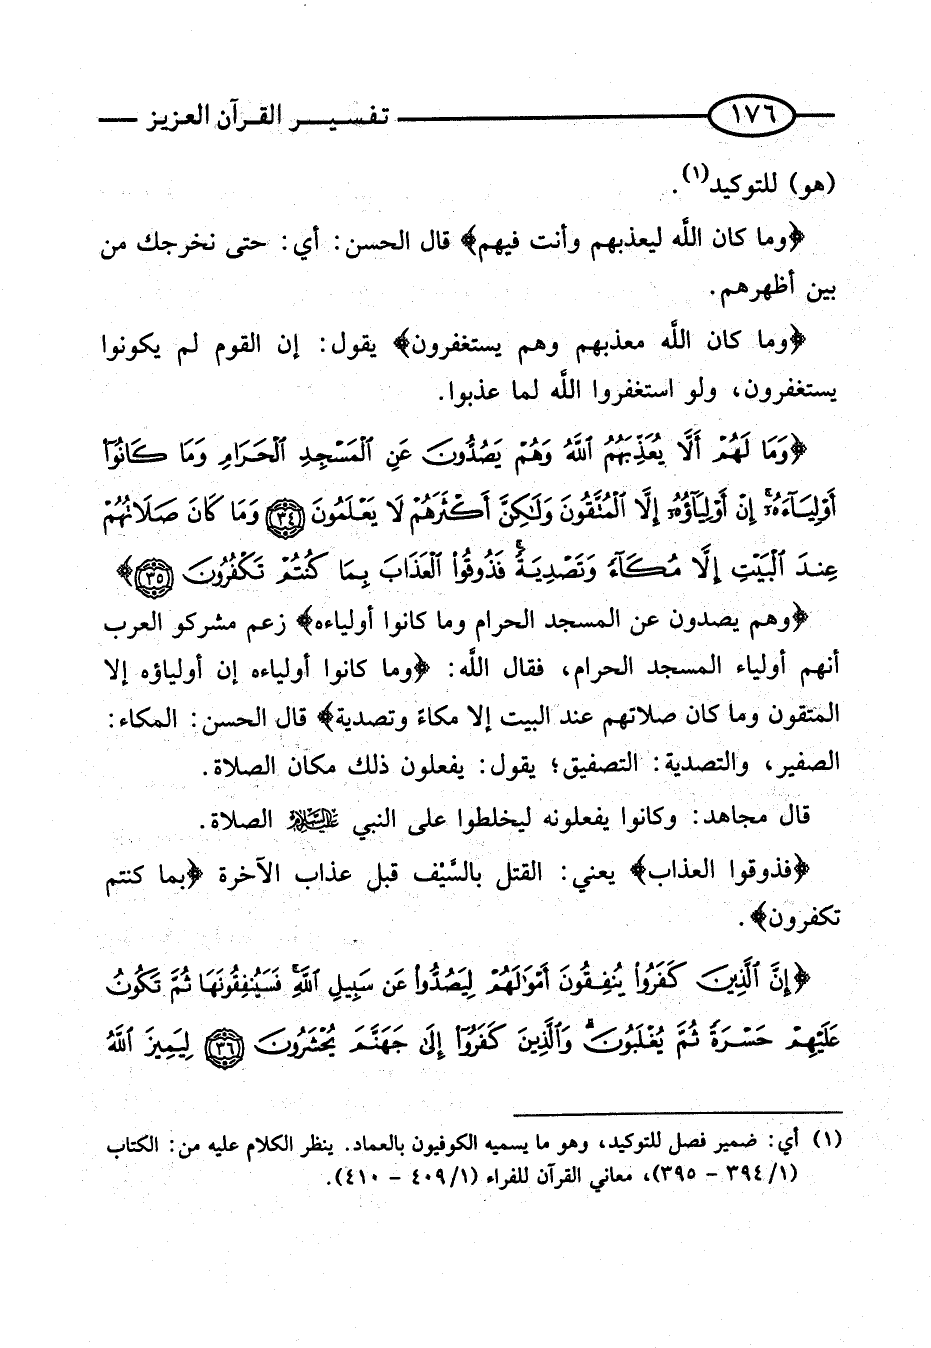 ١٧٦ تفسير القرآن العزيز
(هو) للتوكيد(١).
﴿وما كان اللَّه ليعذبهم وأنت فيهم﴾ قال الحسن: أي: حتى نخرجك من
بين أظهرهم.
﴿وما كان اللَّه معذبهم وهم يستغفرون﴾ يقول: إن القوم لم يكونوا
يستغفرون، ولو استغفروا اللَّه لما عذبوا.
﴿وَمَا لَهُمْ أَلَّا يُعَذِّبَهُمُ ٱللَّهُ وَهُمْ يَصُدُّونَ عَنِ ٱلْمَسْجِدِ ٱلْحَرَامِ وَمَا كَانُوٓا۟
أَوْلِيَآءَهُۥٓ ۚ إِنْ أَوْلِيَآؤُهُۥٓ إِلَّا ٱلْمُتَّقُونَ وَلَٰكِنَّ أَكْثَرَهُمْ لَا يَعْلَمُونَ ٣٤ وَمَا كَانَ صَلَاتُهُمْ
عِندَ ٱلْبَيْتِ إِلَّا مُكَآءً وَتَصْدِيَةً ۚ فَذُوقُوا۟ ٱلْعَذَابَ بِمَا كُنتُمْ تَكْفُرُونَ ٣٥﴾
﴿وهم يصدون عن المسجد الحرام وما كانوا أولياءه﴾ زعم مشركو العرب
أنهم أولياء المسجد الحرام، فقال اللَّه: ﴿وما كانوا أولياءه إن أولياؤه إلا
المتقون وما كان صلاتهم عند البيت إلا مكاءً وتصدية﴾ قال الحسن: المكاء:
الصفير، والتصدية: التصفيق؛ يقول: يفعلون ذلك مكان الصلاة.
قال مجاهد: وكانوا يفعلونه ليخلطوا على النبي عليه السلام الصلاة.
﴿فذوقوا العذاب﴾ يعني: القتل بالسَّيْف قبل عذاب الآخرة ﴿بما كنتم
تكفرون﴾.
﴿إِنَّ ٱلَّذِينَ كَفَرُوا۟ يُنفِقُونَ أَمْوَٰلَهُمْ لِيَصُدُّوا۟ عَن سَبِيلِ ٱللَّهِ ۚ فَسَيُنفِقُونَهَا ثُمَّ تَكُونُ
عَلَيْهِمْ حَسْرَةً ثُمَّ يُغْلَبُونَ ۗ وَٱلَّذِينَ كَفَرُوٓا۟ إِلَىٰ جَهَنَّمَ يُحْشَرُونَ ٣٦ لِيَمِيزَ ٱللَّهُ
(١) أي: ضمير فصل للتوكيد، وهو ما يسميه الكوفيون بالعماد. ينظر الكلام عليه من: الكتاب
(١/ ٣٩٤ - ٣٩٥)، معاني القرآن للفراء (١/ ٤٠٩ - ٤١٠).